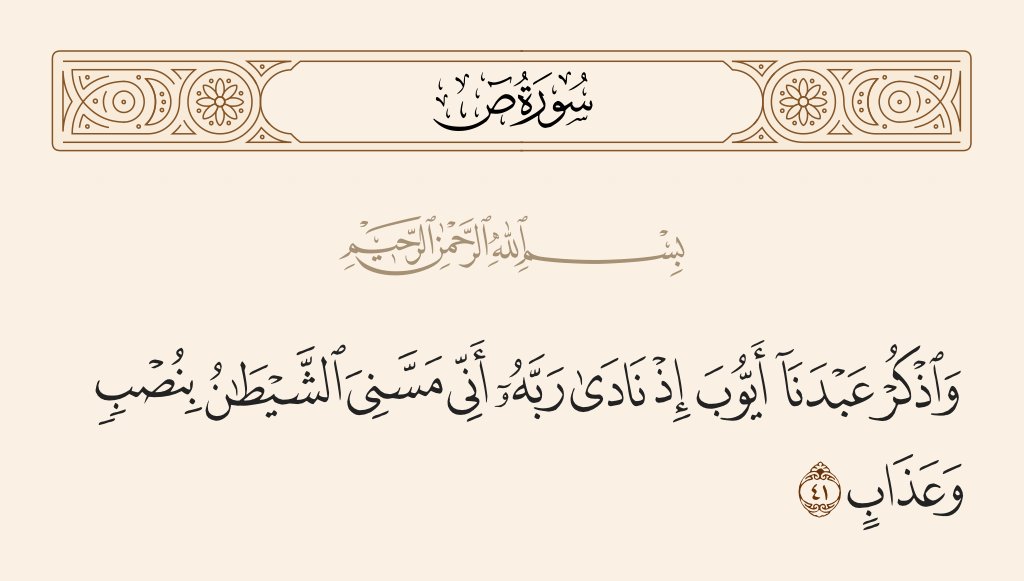 سُورَةُ صٓ
بِسْمِ ٱللَّهِ ٱلرَّحْمَٰنِ ٱلرَّحِيمِ
وَٱذْكُرْ عَبْدَنَآ أَيُّوبَ إِذْ نَادَىٰ رَبَّهُۥٓ أَنِّى مَسَّنِىَ ٱلشَّيْطَٰنُ بِنُصْبٍ
وَعَذَابٍ ٤١